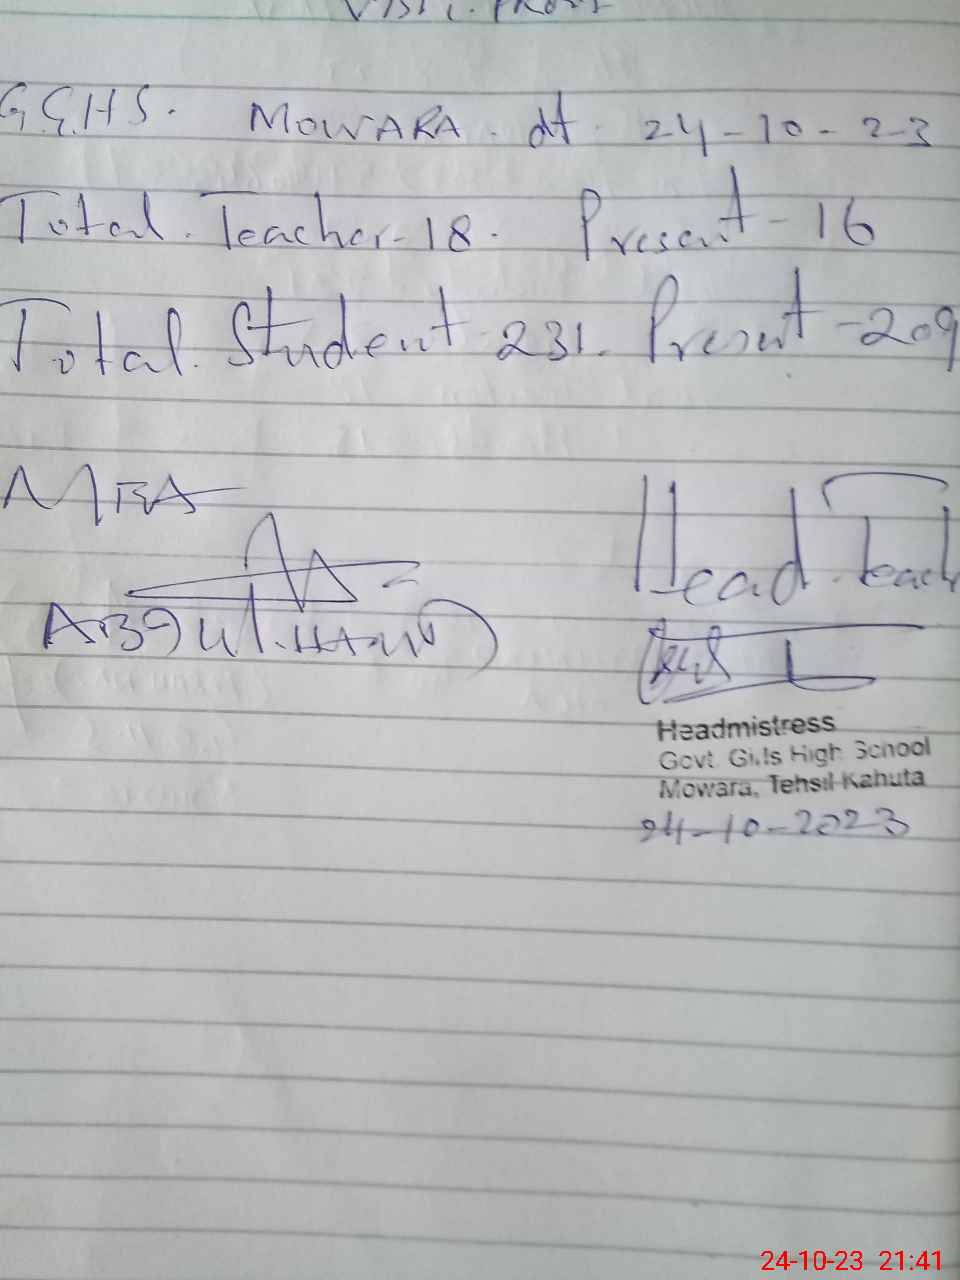 Visit. Proof
G.G.H.S. MOWARA. dt. 24-10-23
Total. Teacher-18. Present-16
Total. Student 231. Present-209
MEA
Head. Teach
ABDul.
Headmistress
Govt. Girls High School
Mowara, Tehsil Kahuta
24-10-2023
24-10-23 21:41